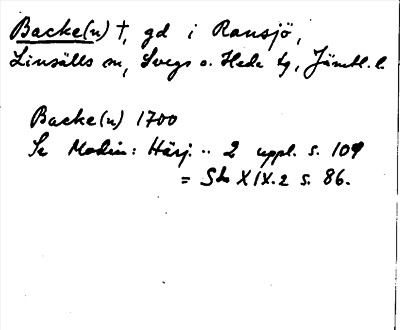 Backe(n) †, gd i Ransjö,
Linsälls sn, Svegs o. Hede tg, Jämtl. l.
Backe(n) 1700
Se Modin: Härj. .. 2 uppl. s. 109
= Sbl XIX.2 s. 86.